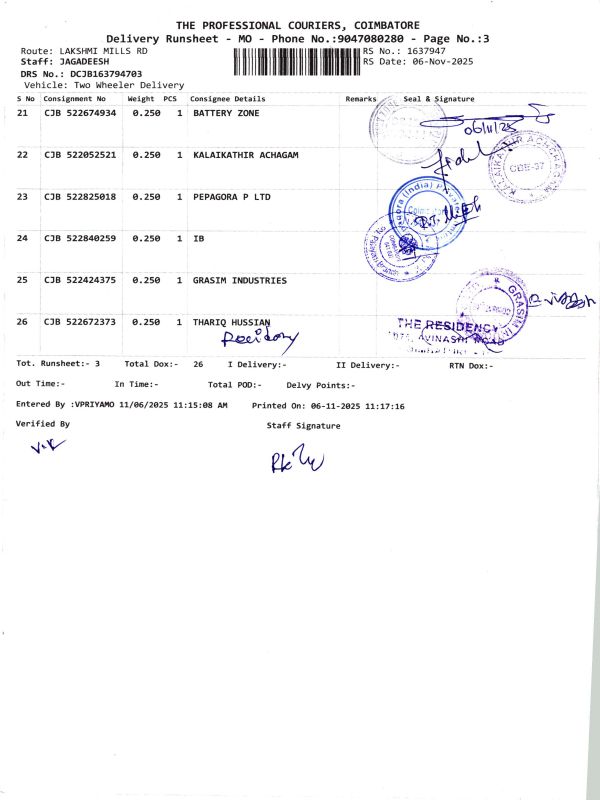 THE PROFESSIONAL COURIERS, COIMBATORE
Delivery Runsheet - MO - Phone No.:9047080280 - Page No.:3
Route: LAKSHMI MILLS RD RS No.: 1637947
Staff: JAGADEESH RS Date: 06-Nov-2025
DRS No.: DCJB163794703
Vehicle: Two Wheeler Delivery
S No Consignment No Weight PCS Consignee Details Remarks Seal & Signature
21 CJB 522674934 0.250 1 BATTERY ZONE
06/11/25
22 CJB 522052521 0.250 1 KALAIKATHIR ACHAGAM
KALAIKATHIR ACHCHAGAM
CBE-37
23 CJB 522825018 0.250 1 PEPAGORA P LTD
24 CJB 522840259 0.250 1 IB
25 CJB 522424375 0.250 1 GRASIM INDUSTRIES
GRASIM
26 CJB 522672373 0.250 1 THARIQ HUSSIAN
THE RESIDENCY
AVINASHI ROAD
Tot. Runsheet:- 3 Total Dox:- 26 I Delivery:- II Delivery:- RTN Dox:-
Out Time:- In Time:- Total POD:- Delvy Points:-
Entered By :VPRIYAMO 11/06/2025 11:15:08 AM Printed On: 06-11-2025 11:17:16
Verified By Staff Signature